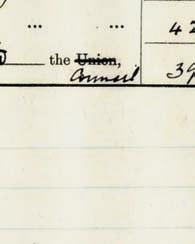 ... ... 42
the Union,
Council 39